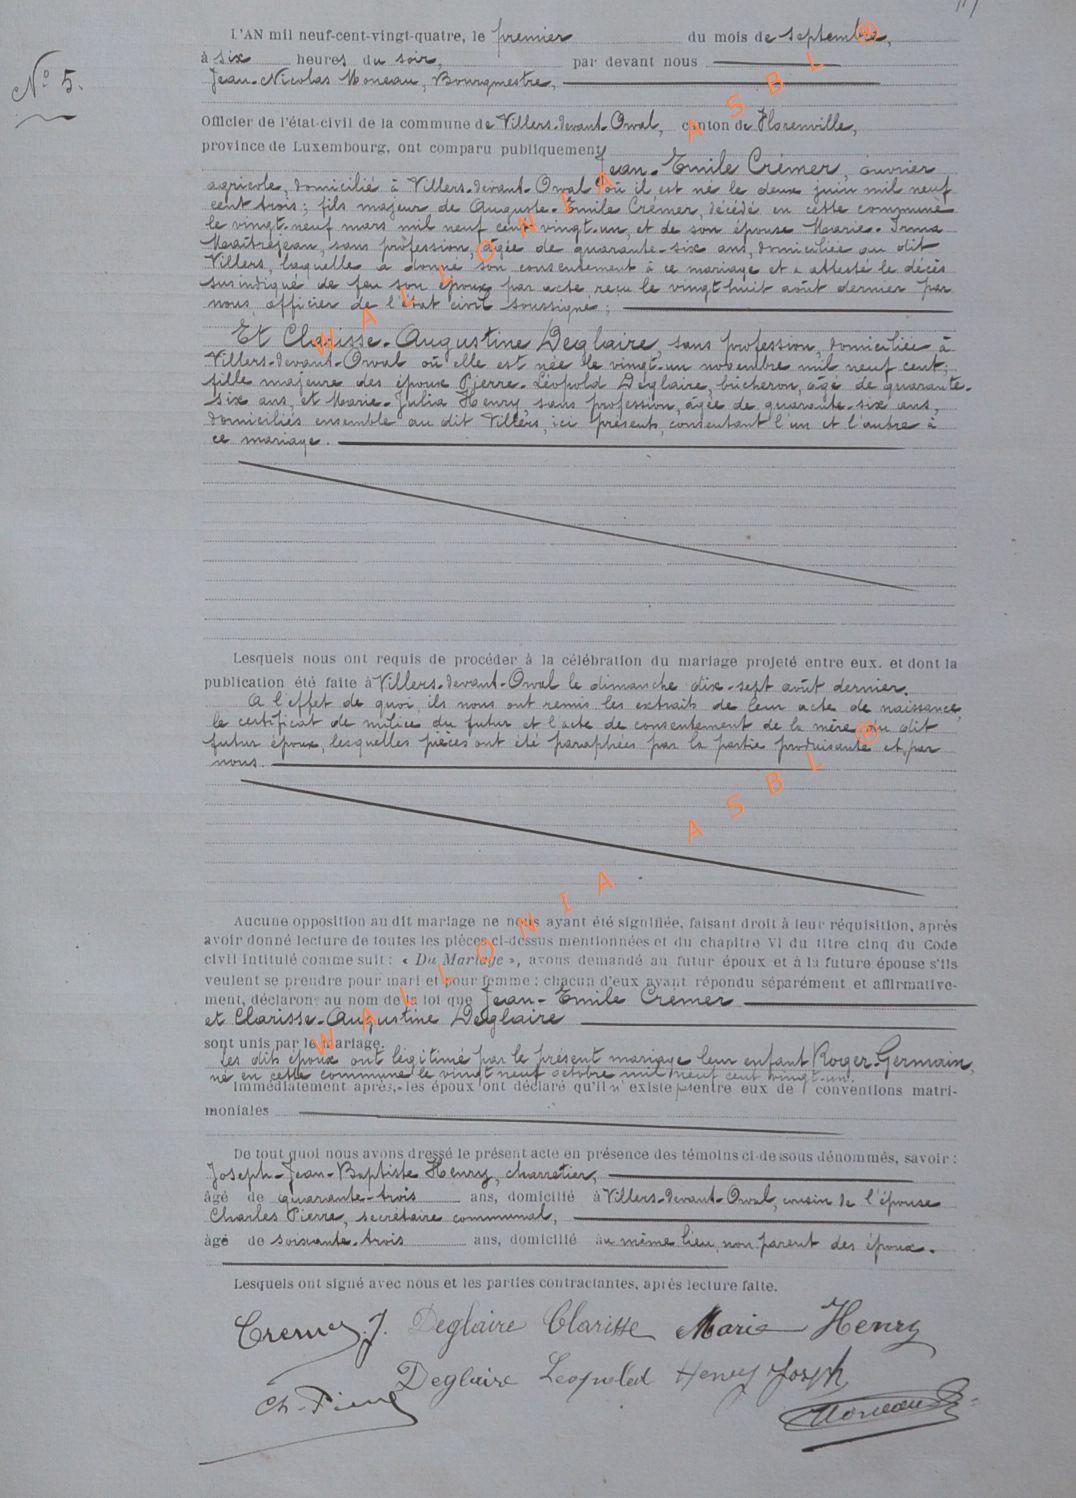 N° 5.
L'AN mil neuf-cent-vingt-quatre, le premier du mois de septembre,
à six heures du soir, par devant nous
Jean-Nicolas Moneau, Bourgmestre,
Officier de l'état-civil de la commune de Villers-devant-Orval, canton de Florenville,
province de Luxembourg, ont comparu publiquement
Jean-Emile Crémer, ouvrier
agricole, domicilié à Villers-devant-Orval où il est né le deux juin mil neuf
cent trois; fils majeur de Auguste-Emile Crémer, décédé en cette commune
le vingt-neuf mars mil neuf cent vingt-un, et de son épouse Marie-Irma
Maîtrejean, sans profession, âgée de quarante-six ans, domiciliée au dit
Villers, laquelle a donné son consentement à ce mariage et a attesté le décès
susindiqué de feu son époux par acte reçu le vingt huit août dernier par
nous, officier de l'état civil soussigné;
Et Clarisse-Augustine Deglaire, sans profession, domiciliée à
Villers-devant-Orval où elle est née le vingt-un novembre mil neuf cent;
fille majeure des époux Pierre-Léopold Deglaire, bûcheron, âgé de quarante-
six ans, et Marie-Julia Henry, sans profession, âgée de quarante-six ans,
domiciliés ensemble au dit Villers, ici présents, consentant l'un et l'autre à
ce mariage.
Lesquels nous ont requis de procéder à la célébration du mariage projeté entre eux, et dont la
publication été faite à Villers-devant-Orval le dimanche dix-sept août dernier.
A l'effet de quoi, ils nous ont remis les extraits de leur acte de naissance,
le certificat de milice du futur et l'acte de consentement de la mère du dit
futur époux, lesquelles pièces ont été paraphées par la partie produisante et par
nous.
Aucune opposition au dit mariage ne nous ayant été signifiée, faisant droit à leur réquisition, après
avoir donné lecture de toutes les pièces ci-dessus mentionnées et du chapitre VI du titre cinq du Code
civil intitulé comme suit : « Du Mariage », avons demandé au futur époux et à la future épouse s'ils
veulent se prendre pour mari et pour femme : chacun d'eux ayant répondu séparément et affirmative-
ment, déclarons au nom de la loi que Jean-Emile Crémer
et Clarisse-Augustine Deglaire
sont unis par le mariage.
Les dits époux ont légitimé par le présent mariage leur enfant Roger-Germain,
né en cette commune le vingt neuf octobre mil neuf cent vingt-un.
Immédiatement après, les époux ont déclaré qu'il n'existe pas entre eux de conventions matri-
moniales
De tout quoi nous avons dressé le présent acte en présence des témoins ci-dessous dénommés, savoir :
Joseph-Jean-Baptiste Henry, charretier,
âgé de quarante-trois ans, domicilié à Villers-devant-Orval, cousin de l'épouse
Charles Pierre, secrétaire communal,
âgé de soixante-trois ans, domicilié au même lieu, non parent des époux.
Lesquels ont signé avec nous et les parties contractantes, après lecture faite.
Cremer J. Deglaire Clarisse Marie Henry
Deglaire Leopold Henry Joseph
Ch. Pierre Moneau
WALLONIA ASBL ®
WALLONIA ASBL ®